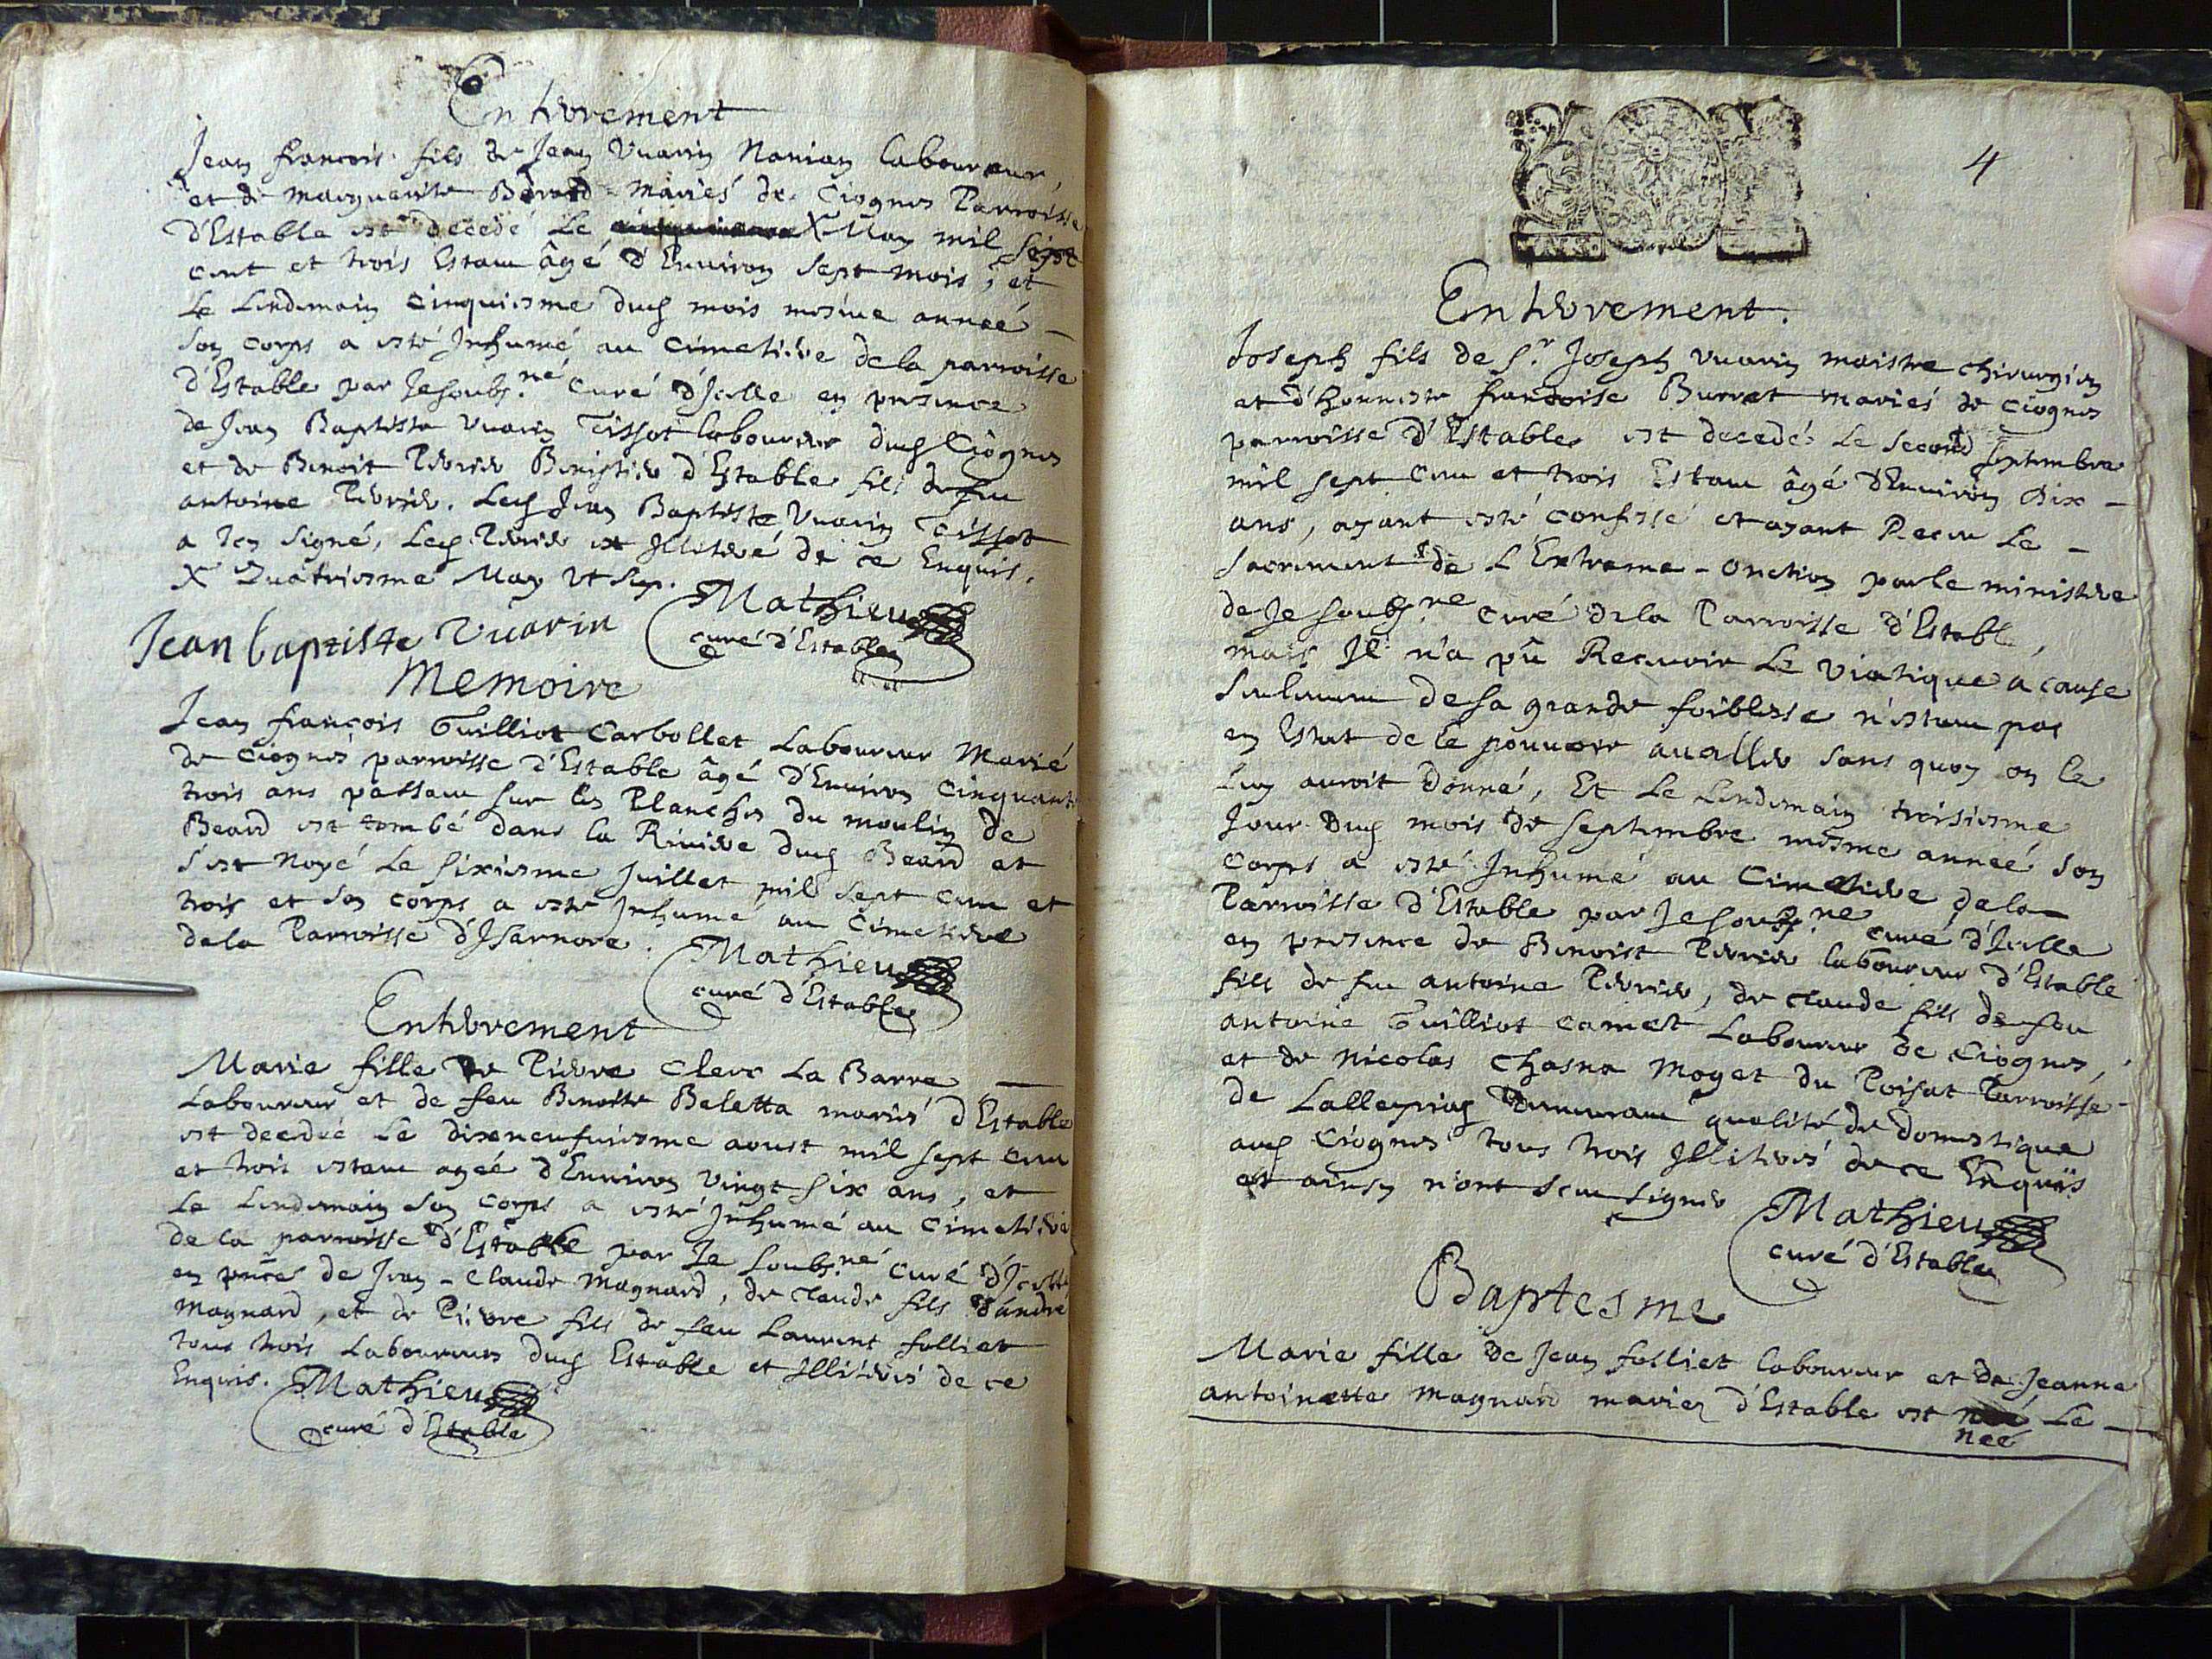 Enterrement
Jean francois fils de Jean Vuarin Nanian laboureur,
et de marguerite Berod mariés de Ciognes Parroisse
d'Estable est decedé le X May mil sept
cent et trois Estant âgé d'Environ sept mois, et
Le Lendemain cinquiesme dud mois mesme année
son corps a esté Inhumé au cimetiere de la parroisse
d'Estable par Je soubs.né curé d'Icelle en presence
de Jean Baptiste Vuarin Tissot laboureur dud Ciognes
et de Benoit Perrier d'Estable fils de feu
antoine Perrier. Led Jean Baptiste Vuarin Tissot
a Icy signé, Led Perrier est Illiteré de ce Enquis.
X Quatriesme May Vt sup.
Mathieu
curé d'Estable
Jean baptiste vuarin
Memoire
Jean françois Guilliot Carbollet Laboureur Marié
de Ciognes parroisse d'Estable âgé d'Environ Cinquante
trois ans passant sur les Planches du moulin de
Beard est tombé dans la Riviere dud Beard et
s'est Noyé Le sixiesme Juillet mil sept cent et
trois et son corps a esté Inhumé au Cimetiere
de la Parroisse d'Isarnore.
Mathieu
curé d'Estable
Enterrement
Marie fille de Pierre Clerc La Barre
Laboureur et de feu Benoite Beletta mariés d'Estable
est decedée Le dixneufviesme aoust mil sept cent
et trois estant agée d'Environ vingt six ans, et
Le Lendemain son corps a esté Inhumé au cimetiere
de la parroisse d'Estable par Je soubs.né curé d'Icelle
en pnce de Jean-Claude Magnard, de Claude fils d'andre
Magnard, et de Pierre fils de feu Laurent folliet
tous trois Laboureurs dud Estable et Illiterés de ce
Enquis.
Mathieu
curé d'Estable
4
Enterrement.
Joseph fils de S.r Joseph vuarin maistre chirurgien
et d'honneste francoise Burret mariés de Ciognes
parroisse d'Estable est decedé Le second septembre
mil sept cent et trois Estant âgé d'Environ dix
ans, ayant esté confessé et ayant Receu Le
sacrement de L'Extreme-onction par le ministere
de Je soubs.né curé de la Parroisse d'Estable,
mais Il n'a pû Recevoir Le viatique a cause
seulement de sa grande foiblesse n'estant pas
en Estat de le pouvoir avaller sans quoy on le
Luy auroit Donné, Et Le Lendemain troisiesme
Jour Dud mois de septembre mesme année son
corps a esté Inhumé au Cimetiere de la
Parroisse d'Estable par Je soubs.né curé d'Icelle
en presence de Benoist Perrier laboureur d'Estable
fils de feu antoine Perrier, de claude fils de feu
antoine Guilliot Camet Laboureur de Ciognes,
et de Nicolas Chasna Moget du Poisat Parroisse
de Lalleyriag qualité de domestique
aud Ciognes tous trois Illiterés de ce Enquis
et ainsy n'ont sceu signer
Mathieu
curé d'Estable
Baptesme
Marie fille de Jean folliet laboureur et de Jeanne
antoinette magnard mariez d'Estable est née Le